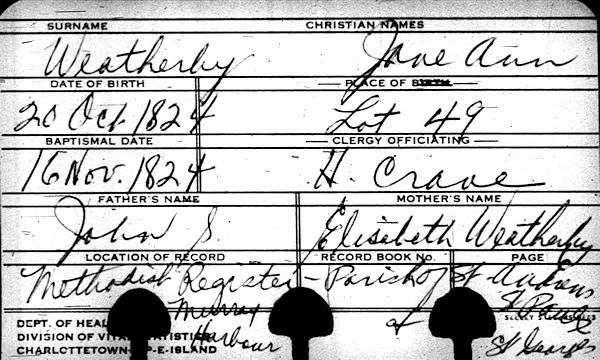 SURNAME CHRISTIAN NAMES
Weatherby Jane Ann
DATE OF BIRTH PLACE OF BIRTH
20 Oct. 1824 Lot 49
BAPTISMAL DATE CLERGY OFFICIATING
16 Nov. 1824 H. Crave
FATHER'S NAME MOTHER'S NAME
John S. Elisebeth Weatherby
LOCATION OF RECORD RECORD BOOK No. PAGE
Methodist Register - Parish of St Andrews
Murray of St Pauls
DEPT. OF HEAL
Harbour St Georges
DIVISION OF VITAL STATISTICS
CHARLOTTETOWN P-E-ISLAND